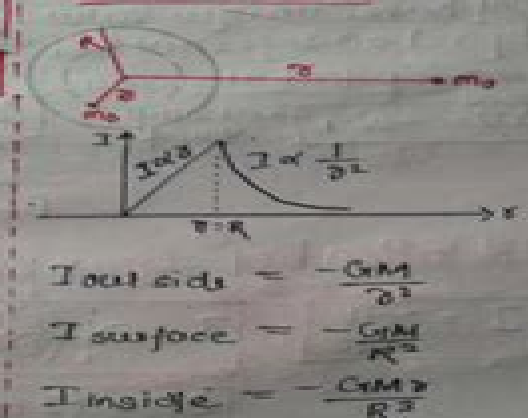 R
r
r
m₀
m₀
I
I ∝ r
I ∝ 1/r²
r = R
r
I outside = -GM/r²
I surface = -GM/R²
I inside = -GMr/R³